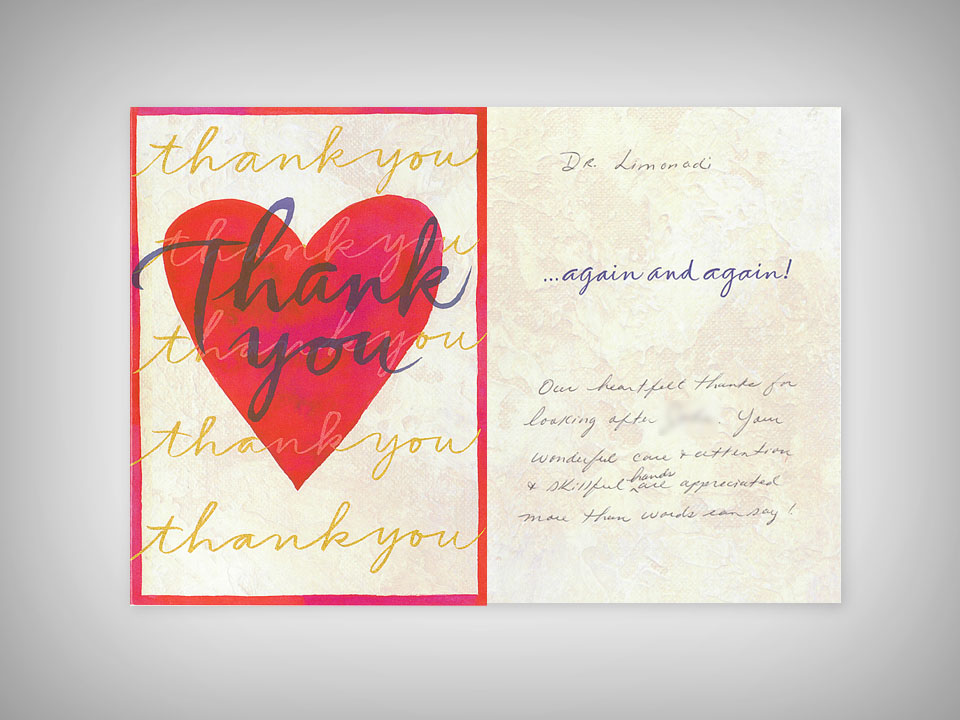 thank you
thank you
Thank
you
thank you
thank you
thank you
Dr. Limonadi
...again and again!
Our heartfelt thanks for
looking after . Your
wonderful care & attention
& skillful hands are appreciated
more than words can say!